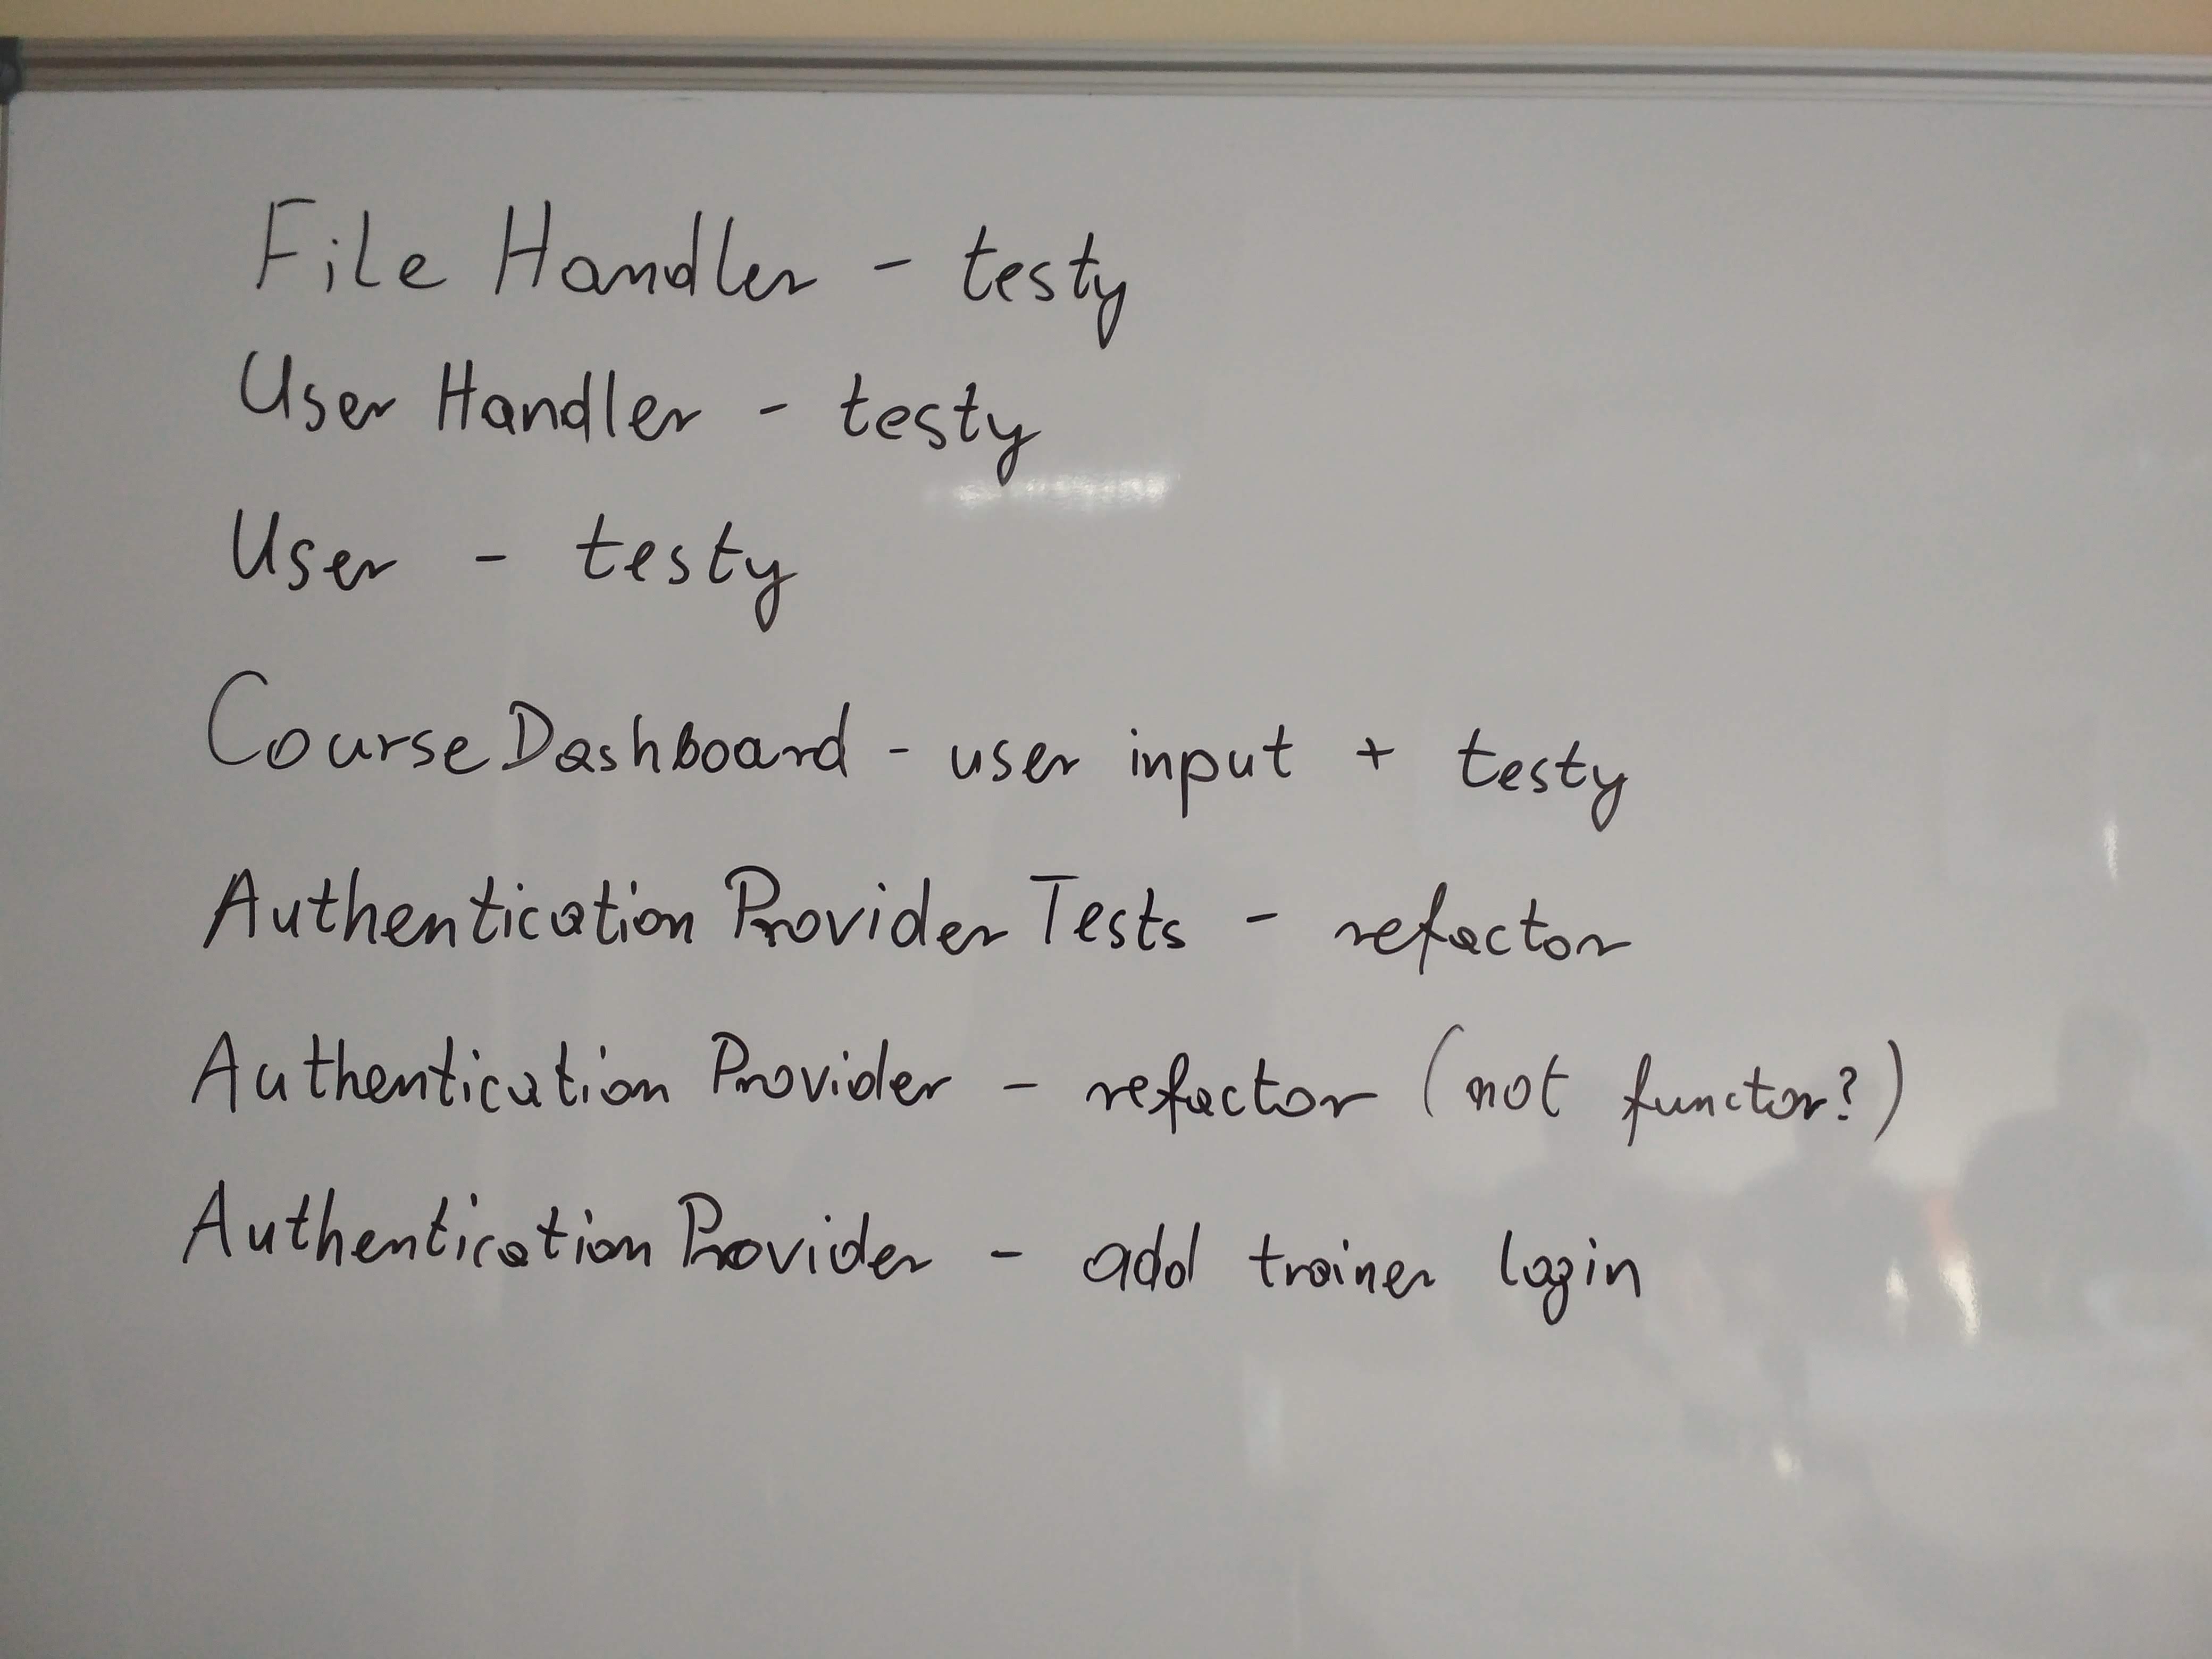 File Handler - testy
User Handler - testy
User - testy
CourseDashboard - user input + testy
Authentication Provider Tests - refactor
Authentication Provider - refactor (not functor?)
Authentication Provider - add trainer login